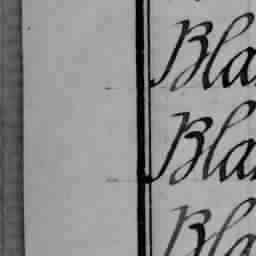 Bla
Bla
Bla